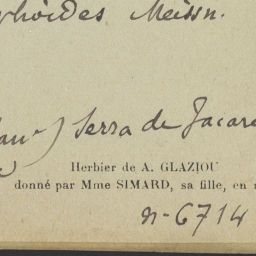 phoides Meissn.
Serra de Jacar
Herbier de A. GLAZIOU
donné par Mme SIMARD, sa fille, en
n-6714